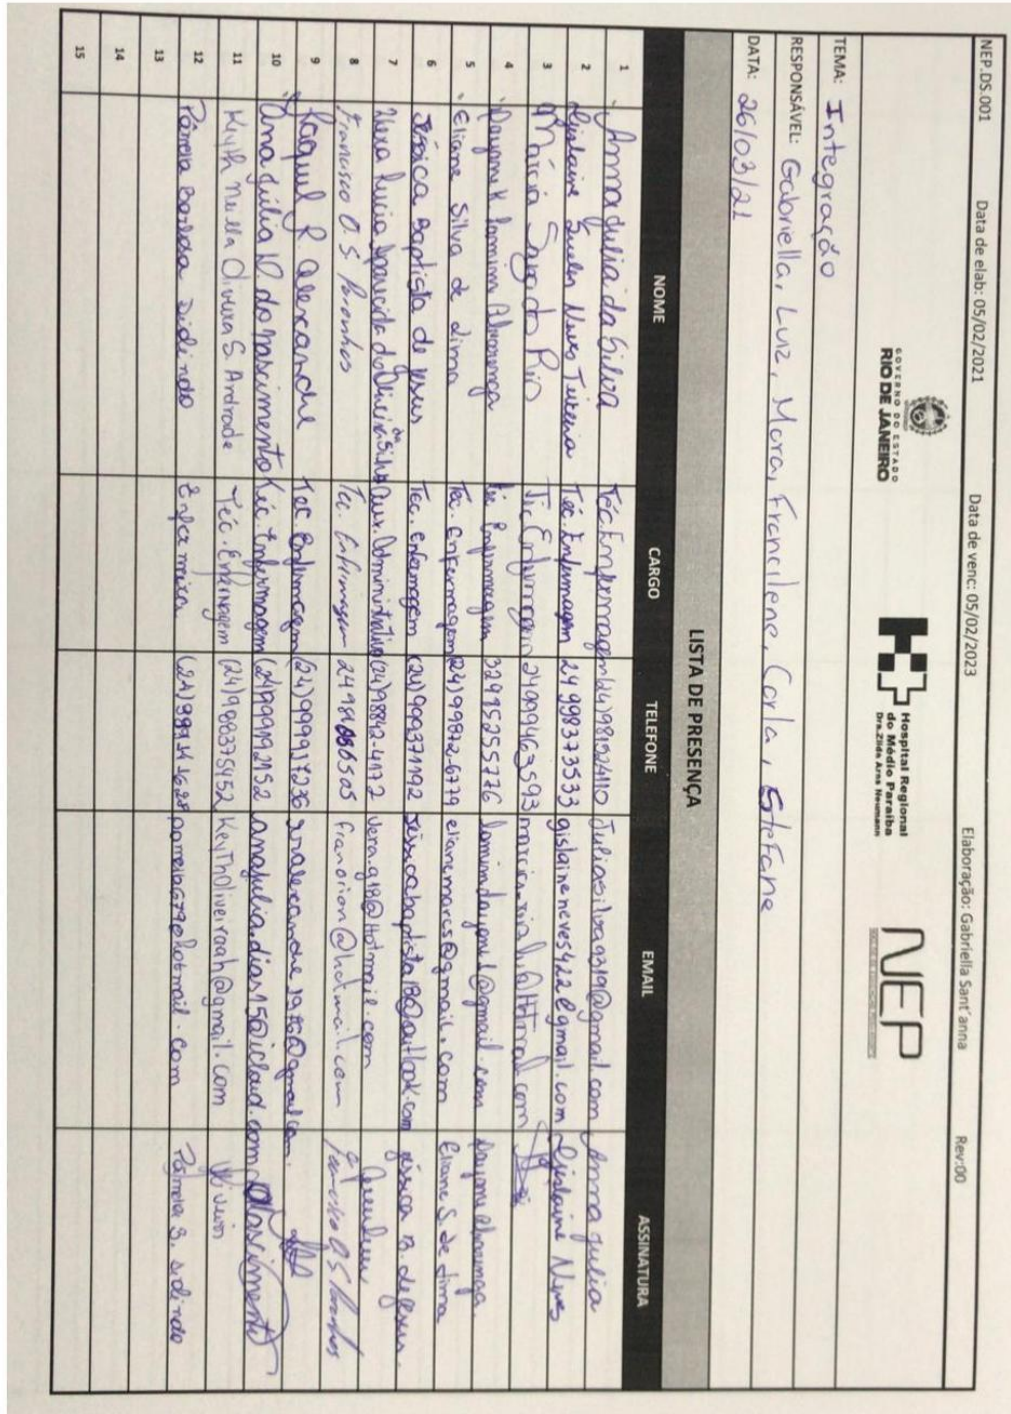 NEP.DS.001 Data de elab: 05/02/2021 Data de venc: 05/02/2023 Elaboração: Gabriella Sant'anna Rev:00
GOVERNO DO ESTADO
RIO DE JANEIRO
Hospital Regional
do Médio Paraíba
Dra.Zilda Arns Neumann
NEP
TEMA: Integração
RESPONSÁVEL: Gabriella, Luiz, Mara, Francilene, Carla, Stefane
DATA: 26/03/21
LISTA DE PRESENÇA
NOME CARGO TELEFONE EMAIL ASSINATURA
1 Anna Julia da Silva Téc. Enfermagem (24) 981524110 Juliasilva9319@gmail.com Anna Julia
2 Gislaine Suelen Neves Teixeira Téc. Enfermagem 24 998373533 gislaineneves422@gmail.com Gislaine Neves
3 Márcia do Rio Tec Enfermagem 24999463593
4 Enfermagem 32915255776
5 Eliane Silva de Lima Tec. Enfermagem (24) 99872-6779 elianemarcs@gmail.com Eliane S. de Lima
6 Jéssica Baptista de Jesus Tec. Enfermagem (24) 999371192 jessicabaptista18@outlook.com Jéssica B. de Jesus
7 Vera Lucia Aparecida de Oliveira Aux. Administrativo (24) 98842-4172 Vera.g18@Hotmail.com
8 Francisco O. S Paranhos Tec. Enfermagem franorion@hotmail.com Francisco O S Paranhos
9 Raquel R. Alexandre Tec. Enfermagem (24) 999917236
10 Ana Júlia D. do Nascimento Téc. Enfermagem (24) 999192152 anajuliadias15@icloud.com Nascimento
11 Keyth Neilla Oliveira S. Andrade Téc. Enfermagem (24) 988375452 KeythOliveiraah@gmail.com
12 Pâmela Barbosa Sidindo Enfermeira pamela679@hotmail.com Pâmela B. Sidindo
13
14
15